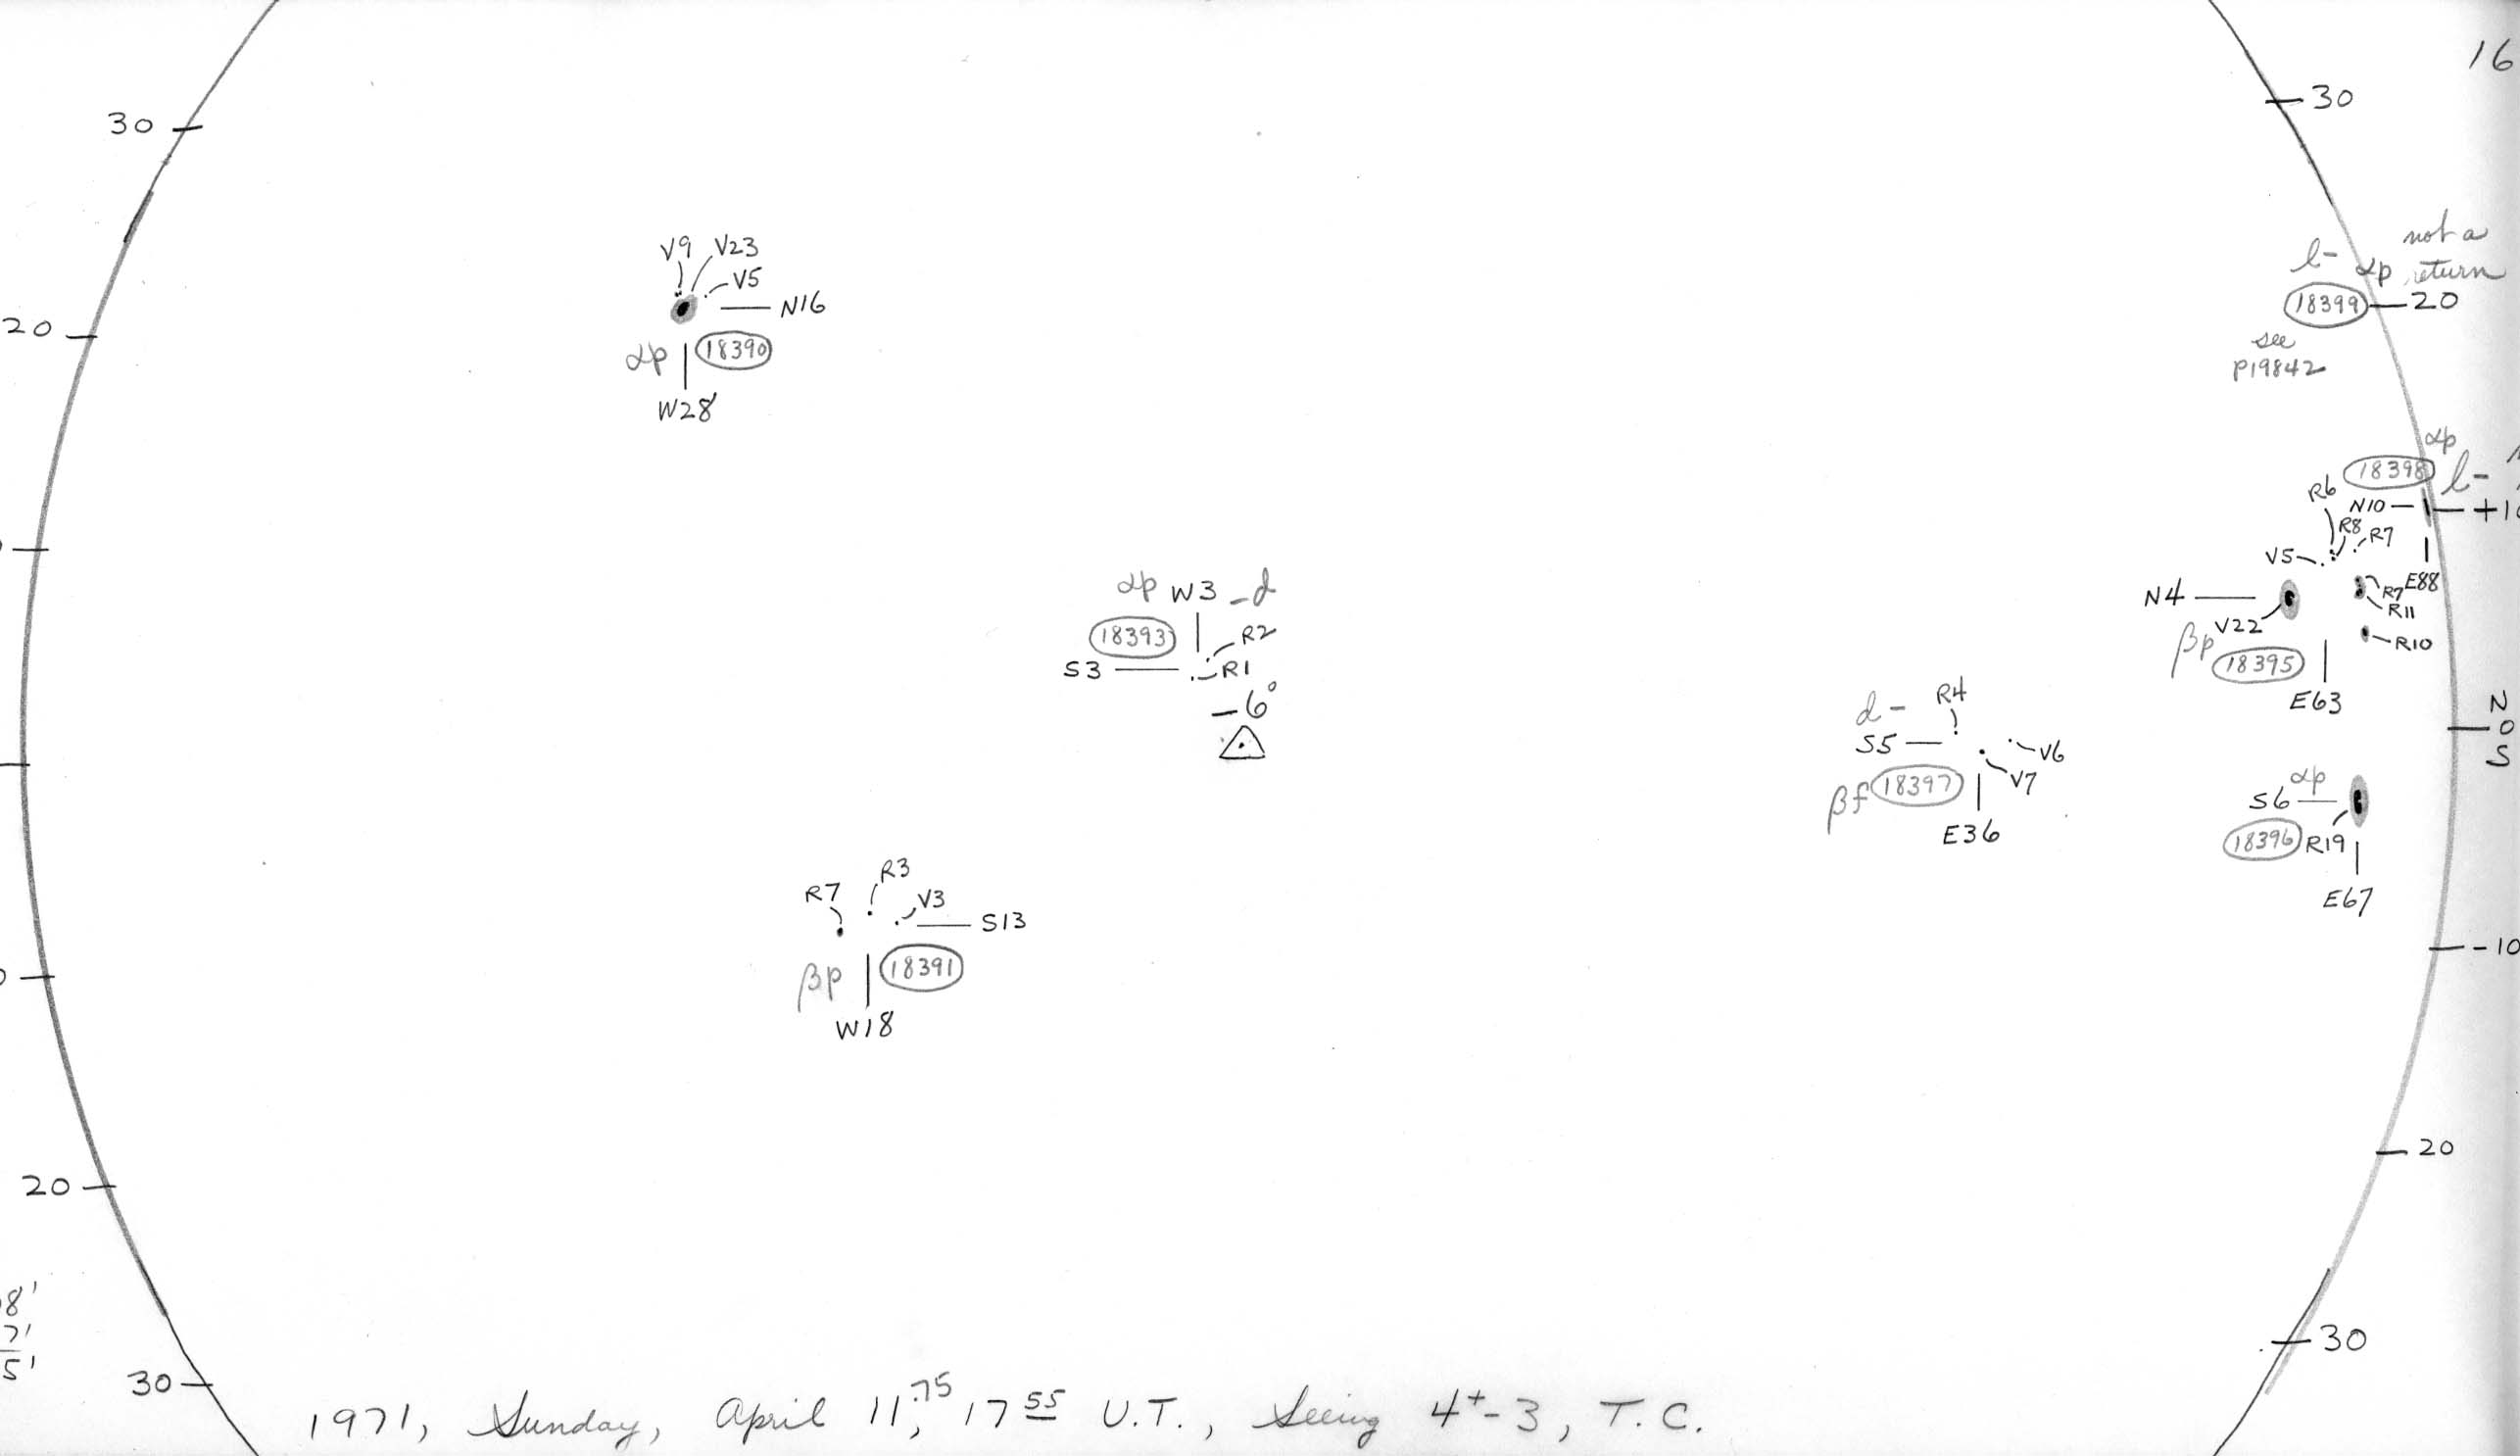 16
30
30
not a
l- αp return
18399 20
see
P19842
V9 V23
V5
N16
20
αp 18390
W28
αp
18398 l-
R6 N10
R8 R7
V5
E88
N4 R7
R11
V22
βp R10
18395
E63
αp W3 -d
18393 R2
S3 R1
-6°
N
0
S
d- R4
S5 V6
V7
βf 18397
E36
αp
S6
18396 R19
E67
R7 R3
V3
S13
βp 18391
W18
-10
20
20
8'
7'
5'
30
30
1971, Sunday, April 11.75, 17 55 U.T., Seeing 4+-3, T.C.